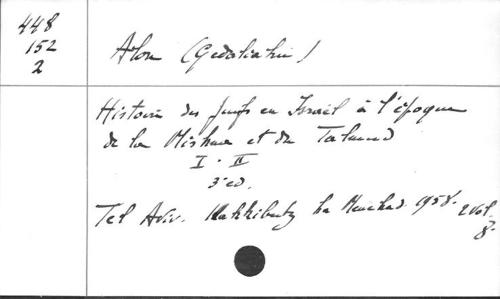 448
152
2
Alon (Gedaliahu)
Histoire des Juifs en Israël à l'époque
de la Mishna et du Talmud
I - II
3e ed.
Tel Aviv. Hakkibutz ha Meuchad. 1958. 2 vol.
8.